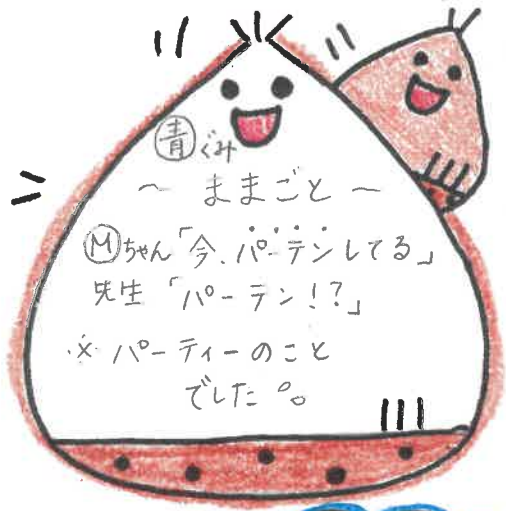 青ぐみ
～ ままごと ～
Mちゃん「今、パーテンしてる」
先生「パーテン！？」
※ パーティーのこと
でした。